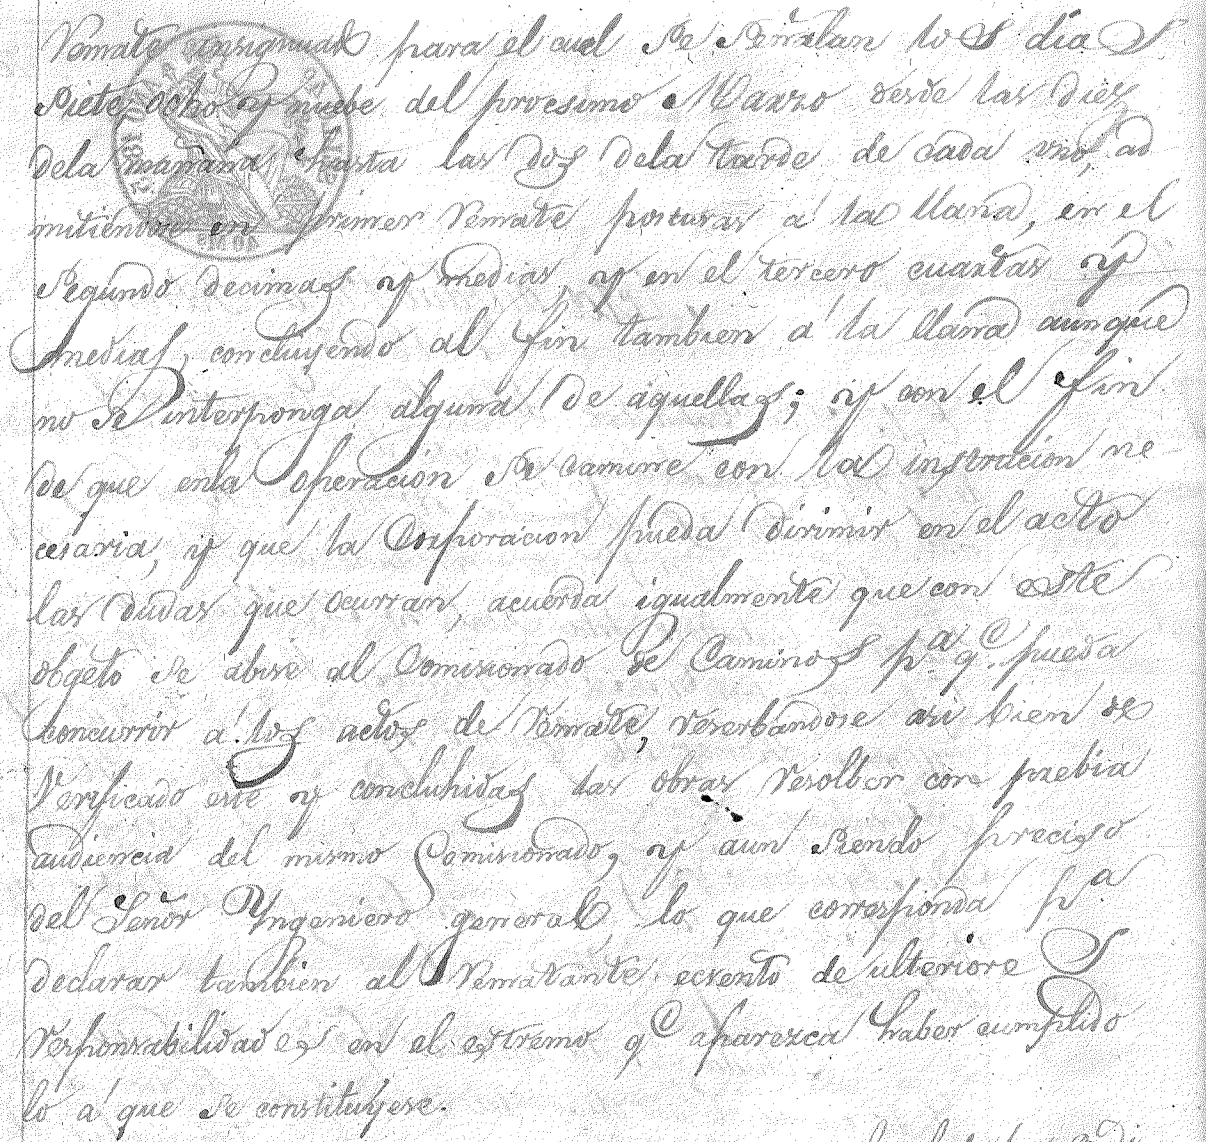 Remate consiguiente para el cual se señalan los días
siete, ocho y nuebe del procsimo Marzo desde las diez
dela mañana hasta las dos dela tarde de cada uno, ad
mitiéndose en primer remate posturas á la llana, en el
segundo decimas y medias, y en el tercero cuartas y
medias, concluyendo al fin tambien á la llana aunque
no se interponga alguna de aquellas; y con el fin
de que enla operación se camine con la instrucion ne-
cesaria, y que la Corporacion pueda dirimir en el acto
las dudas que ocurran, acuerda igualmente que con este
obgeto se abise al Comisionado de Caminos pª qᵉ pueda
concurrir á los actos de remate, reserbandose asi bien de
Verificado este y concluhidas las obras resolber con prebia
audiencia del mismo Comisionado, y aun siendo preciso
del Señor Yngeniero general, lo que corresponda pª
declarar tambien al Rematante ecsento de ulteriores
responsabilidades en el estremo qᵉ aparezca haber cumplido
lo á que se constituyese.